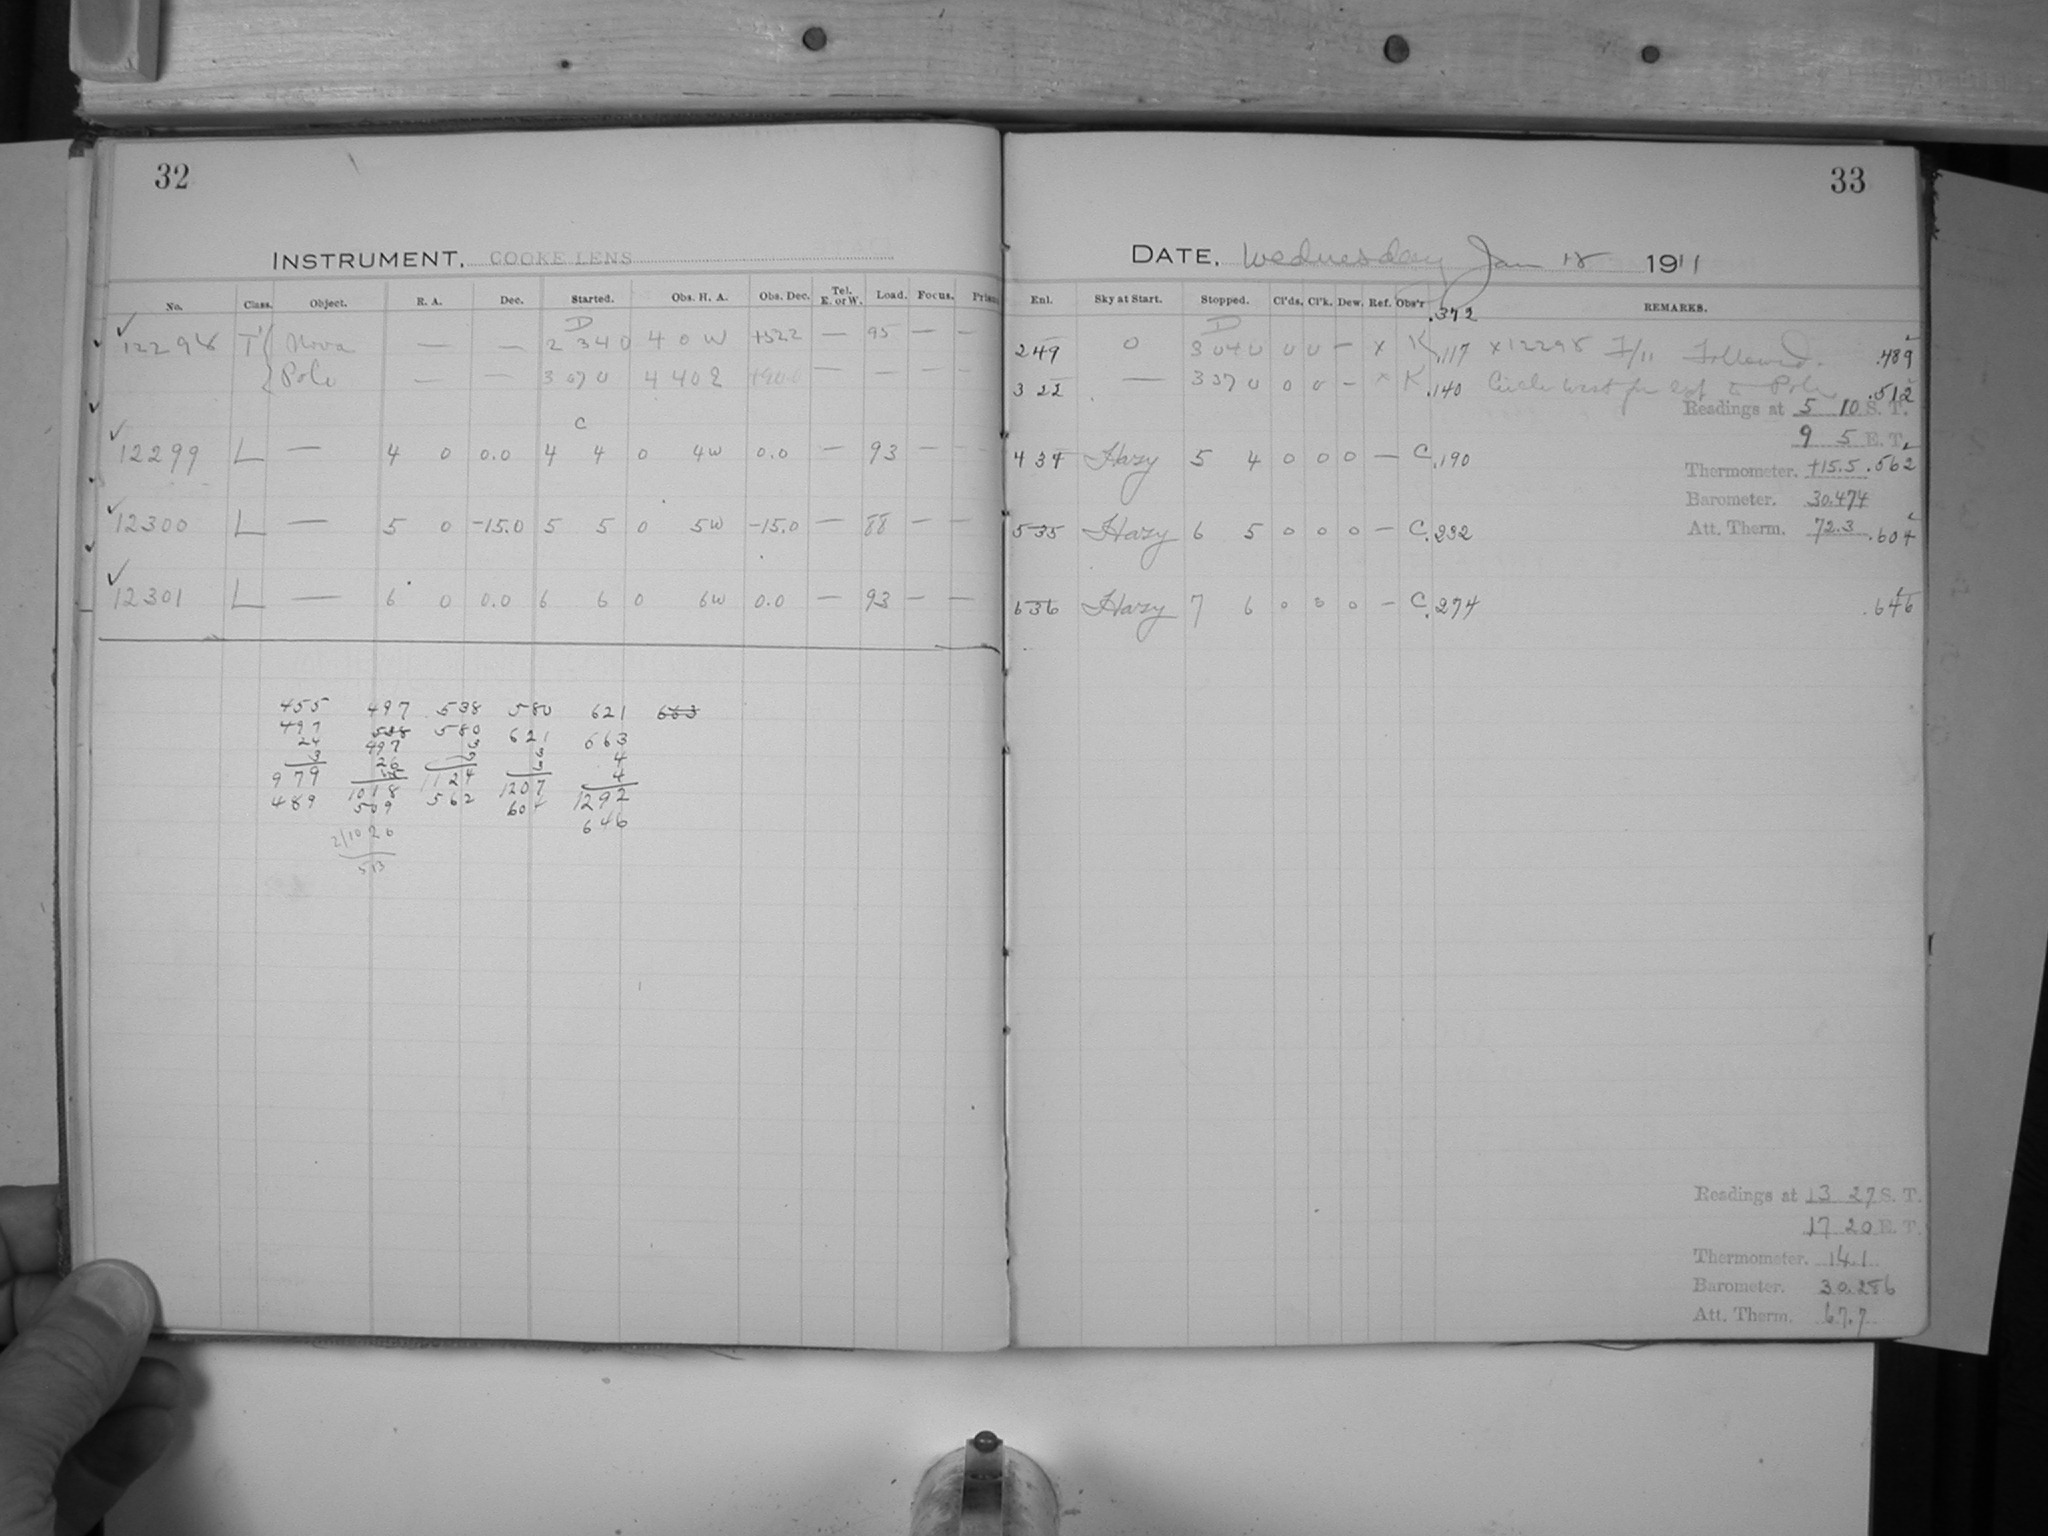 32
INSTRUMENT. COOKE LENS
No. Class. Object. R. A. Dec. Started. Obs. H. A. Obs. Dec. Tel. E. or W. Load. Focus. Prism
D
12298 T' { Nova — — 2 34 0 4 0 W +52.2 — 95 — —
{ Pole — — 3 07 0 4 40 E — — — —
C
12299 L — 4 0 0.0 4 4 0 4w 0.0 — 93 — —
12300 L — 5 0 -15.0 5 5 0 5w -15.0 — 88 — —
12301 L — 6 0 0.0 6 6 0 6w 0.0 — 93 — —
455 497 538 580 621 663
497 538 580 621 663
24 497 3 3 4
3 26 3 3 4
979 1018 1124 1207 1292
489 509 562 604 646
2/1026
513
33
DATE. Wednesday Jan 18 1911
Enl. Sky at Start. Stopped. Cl'ds. Cl'k. Dew. Ref. Obs'r REMARKS.
.372
D
249 0 3 04 0 0 0 — x K .117 x12298 F/11 Followed. .489
322 — 3 37 0 0 0 — x K .140 Circle West for exp to Pole .512
Readings at 5 10 S. T.
9 5 E. T.
434 Hazy 5 4 0 0 0 — C .190 Thermometer. +15.5 .562
Barometer. 30.474
535 Hazy 6 5 0 0 0 — C .232 Att. Therm. 72.3 .604
636 Hazy 7 6 0 0 0 — C .274 .646
Readings at 13 27 S. T.
17 20 E. T.
Thermometer. 14.1
Barometer. 30.286
Att. Therm. 67.7